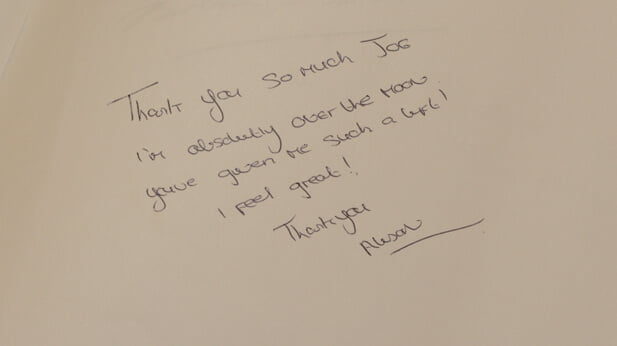 Thank you so much Joe
I'm absolutely over the moon.
youve given me such a lift!
I feel great!
Thankyou
Alison